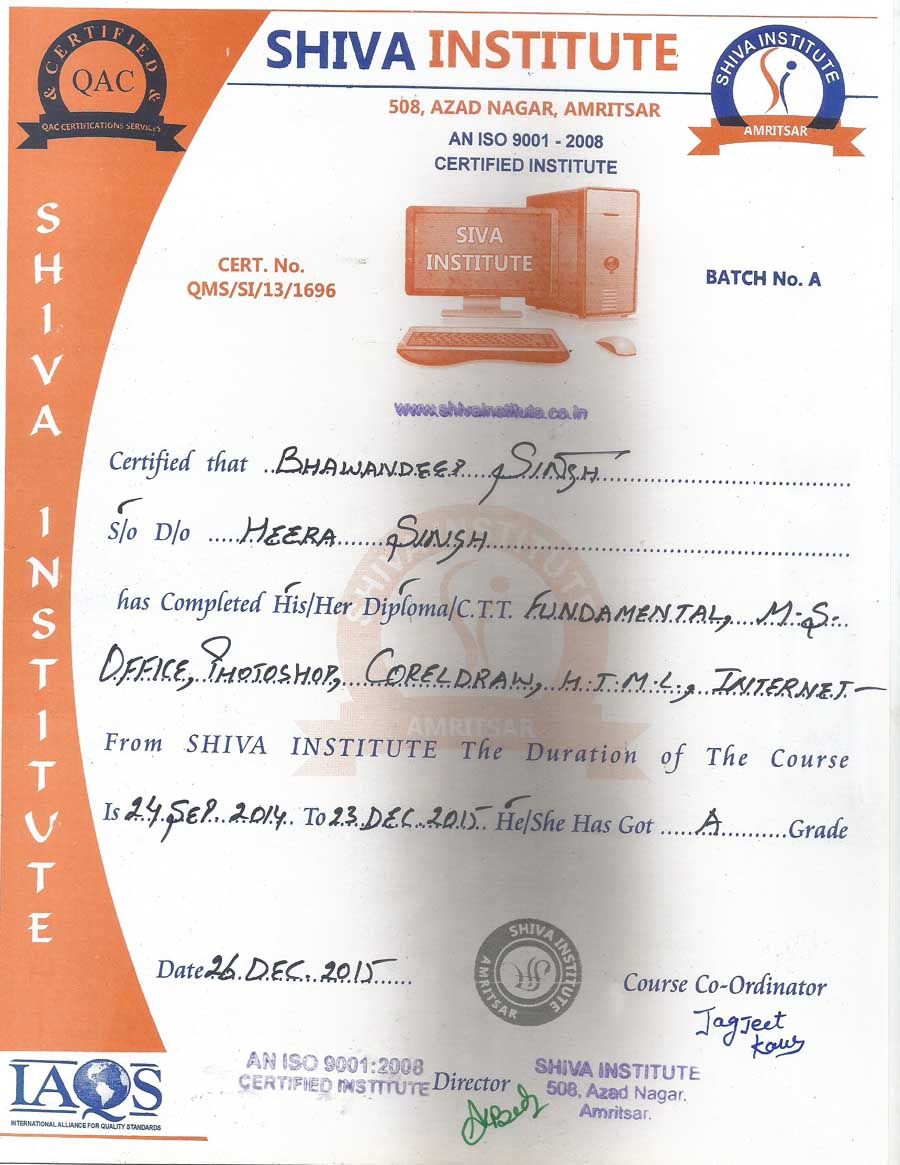 CERTIFIED
& QAC &
QAC CERTIFICATIONS SERVICES
SHIVA INSTITUTE
SHIVA INSTITUTE
AMRITSAR
508, AZAD NAGAR, AMRITSAR
AN ISO 9001 - 2008
CERTIFIED INSTITUTE
SHIVA INSTITUTE
SIVA
INSTITUTE
CERT. No.
QMS/SI/13/1696
BATCH No. A
www.shivainstitute.co.in
Certified that ..BHAWANDEEP SINGH
S/o D/o ....HEERA SINGH
has Completed His/Her Diploma/C.T.T. FUNDAMENTAL, M.S.
OFFICE, PHOTOSHOP, CORELDRAW, H.T.M.L., INTERNET—
SHIVA INSTITUTE
AMRITSAR
From SHIVA INSTITUTE The Duration of The Course
Is 24 SEP. 2014. To 23 DEC. 2015. He/She Has Got .....A..........Grade
Date 26. DEC. 2015
SHIVA INSTITUTE
AMRITSAR
Course Co-Ordinator
Jagjeet
Kaur
IAQS
INTERNATIONAL ALLIANCE FOR QUALITY STANDARDS
AN ISO 9001:2008
CERTIFIED INSTITUTE
Director
SHIVA INSTITUTE
508, Azad Nagar.
Amritsar.